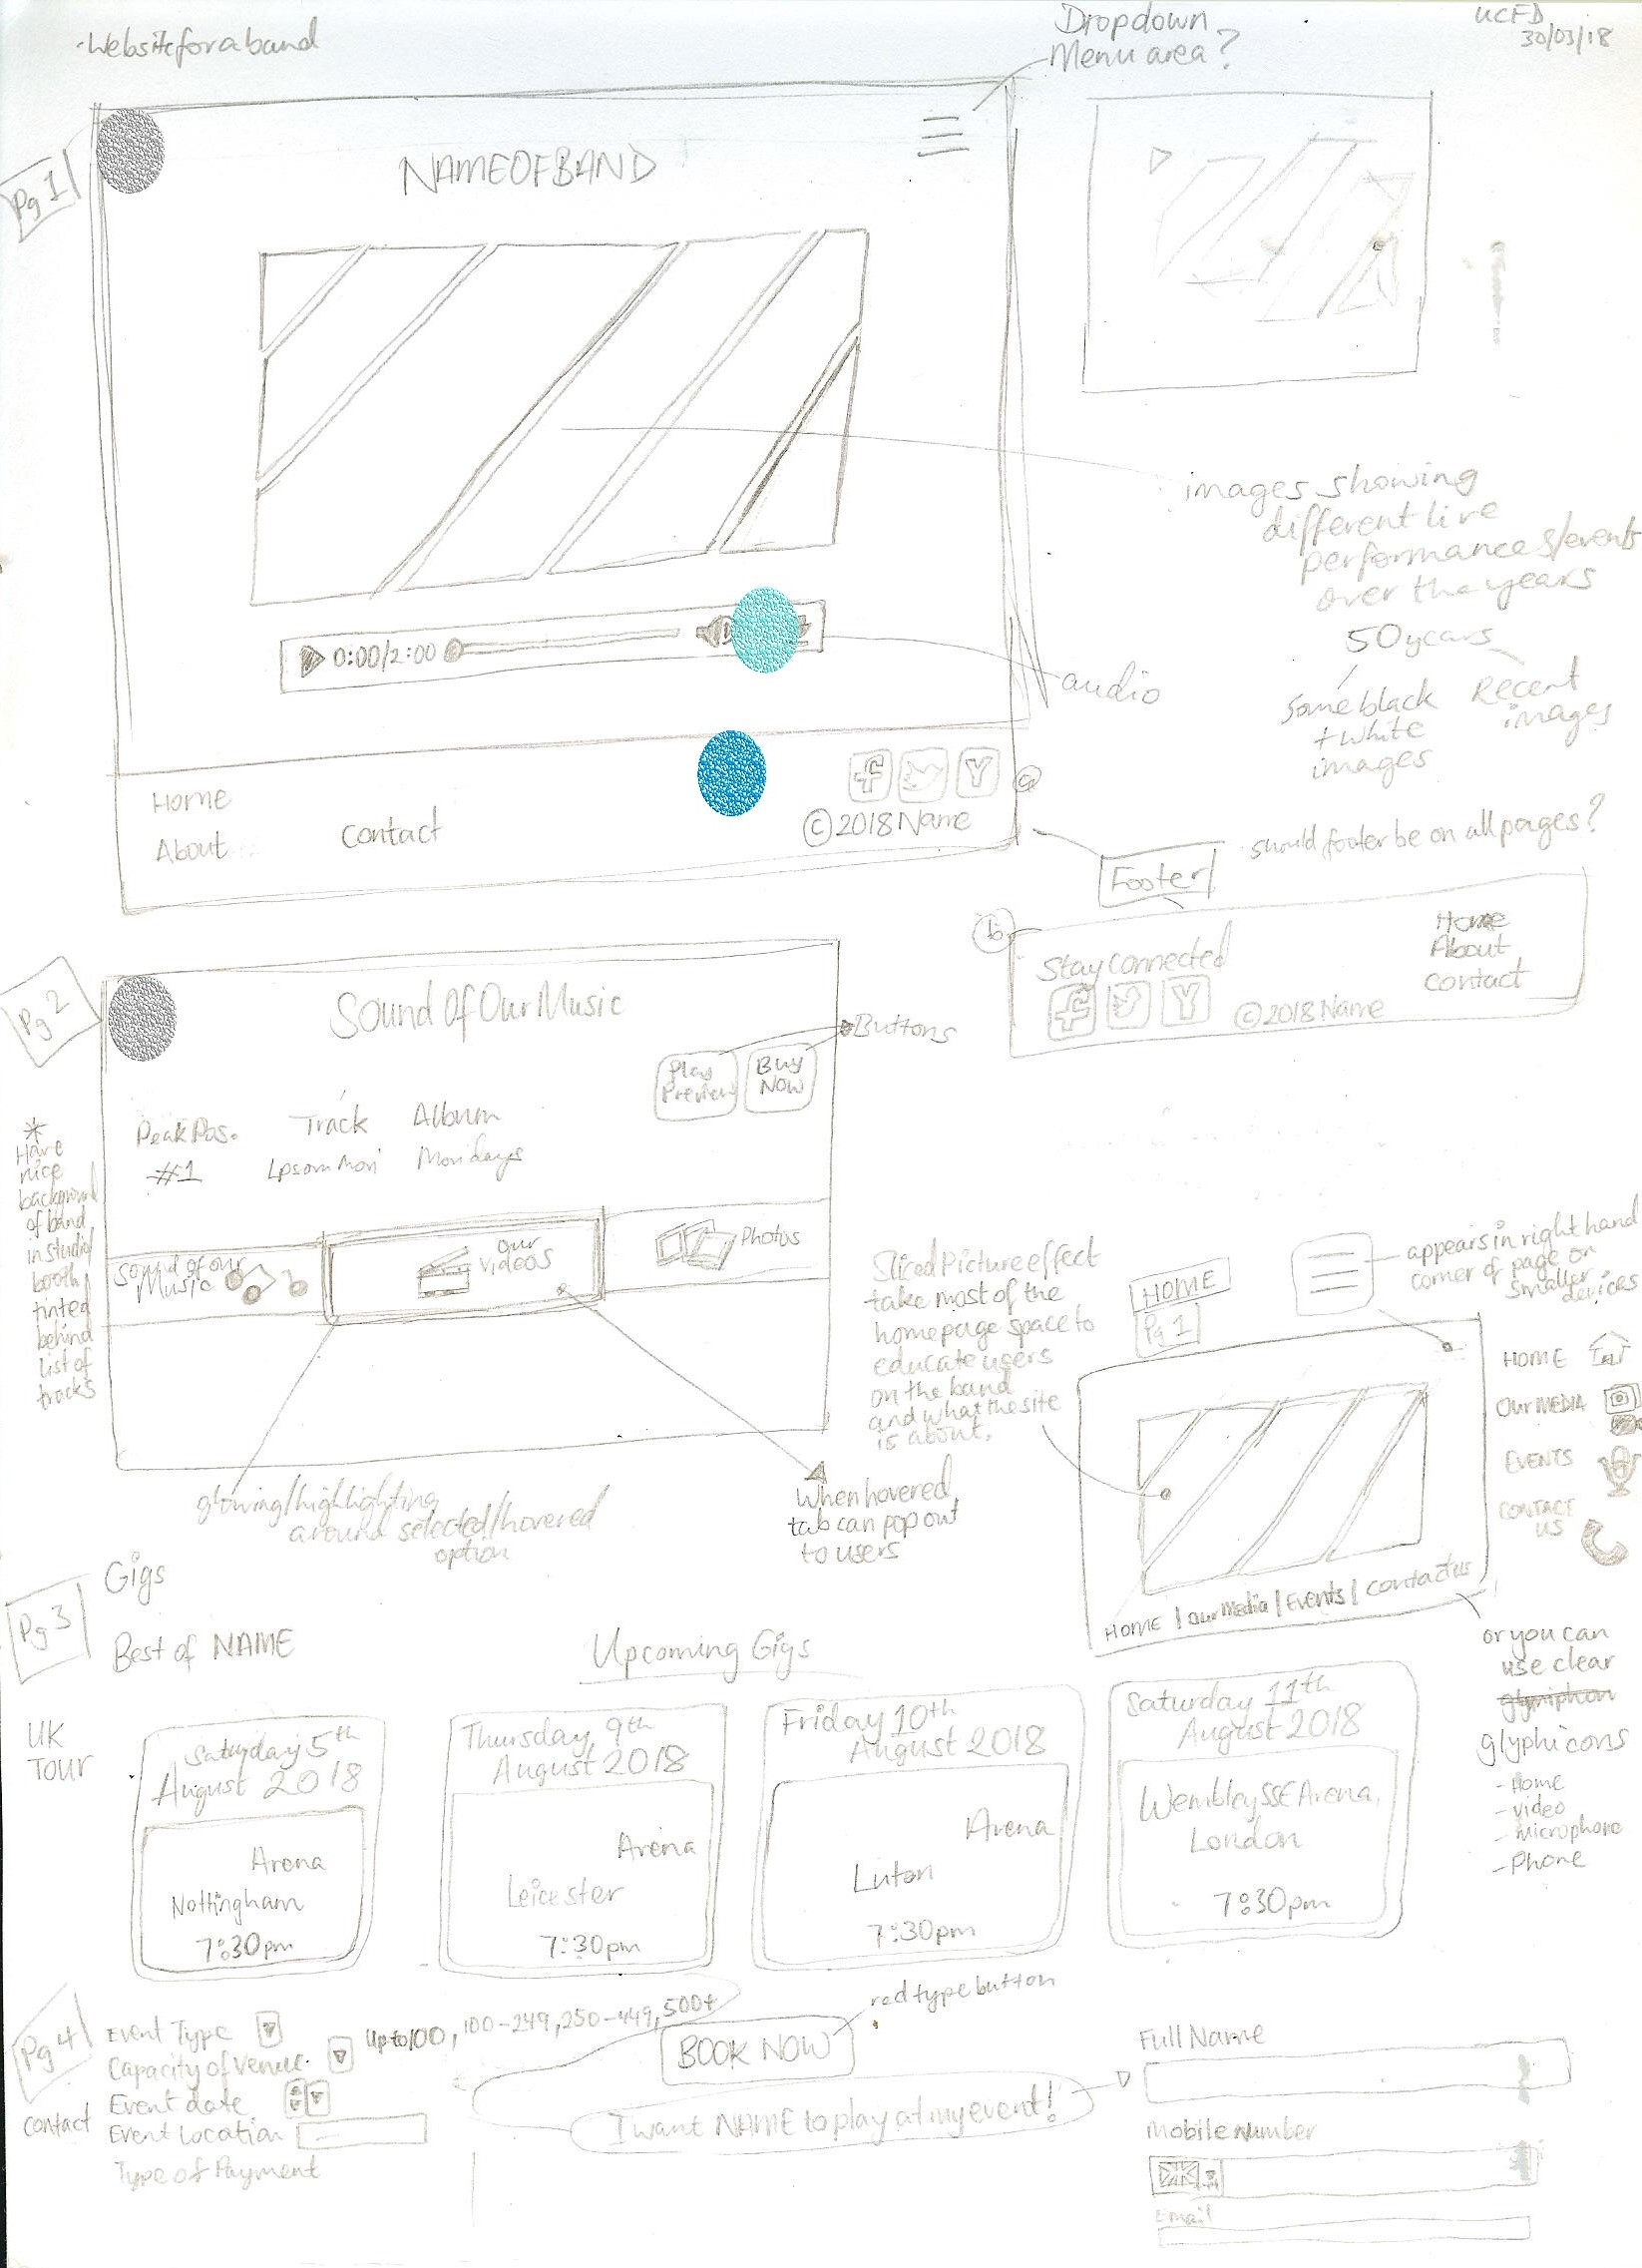 Website for a band
Dropdown
Menu area?
UCFD
30/03/18
Pg 1
NAME OF BAND
images showing
different live
performances/events
over the years
50 years
some black
+ white
images
Recent
images
0:00/2:00
audio
Home
About
Contact
f
Y
a
©2018 Name
Footer
should footer be on all pages?
b
Stay connected
f
Y
©2018 Name
Home
About
Contact
Pg 2
Sound Of Our Music
Buttons
Play
Preview
Buy
Now
Peak Pos.
Track
Album
#1
Ipsom Mori
Mondays
*
Have
nice
background
of band
in studio/
booth/
tinted
behind
list of
tracks
Sound of our
Music
Our
Videos
Photos
glowing/highlighting
around selected/hovered
option
When hovered
tab can pop out
to users
Sliced Picture effect
take most of the
homepage space to
educate users
on the band
and what the site
is about.
HOME
Pg 1
appears in right hand
corner of page or
smaller
devices
HOME
OUR MEDIA
EVENTS
CONTACT
US
HOME | Our Media | Events | Contact us
or you can
use clear
glyphicons
- Home
- Video
- Microphone
- Phone
Pg 3
Gigs
Best of NAME
Upcoming Gigs
UK
TOUR
Saturday 5th
August 2018
Arena
Nottingham
7:30pm
Thursday 9th
August 2018
Arena
Leicester
7:30pm
Friday 10th
August 2018
Arena
Luton
7:30pm
Saturday 11th
August 2018
Wembley SSE Arena,
London
7:30pm
Pg 4
Contact
Event Type
Capacity of venue.
Up to 100, 100-249, 250-449, 500+
Event date
Event Location
Type of Payment
BOOK NOW
red type button
I want NAME to play at my event!
Full Name
Mobile number
Email